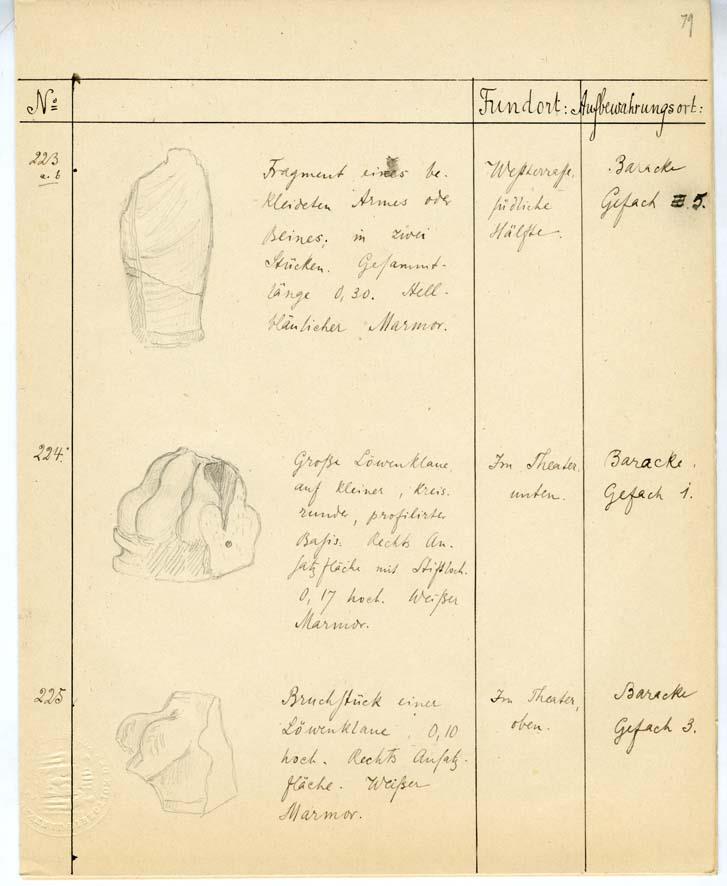 79
No Fundort: Aufbewahrungsort:
223
a. b
Fragment eines be-
kleideten Armes oder
Beines; in zwei
Stücken. Gesammt-
länge 0,30. Hell-
bläulicher Marmor.
Westterrasse,
südliche
Hälfte.
Baracke
Gefach 5.
224.
Große Löwenklaue,
auf kleiner, kreis-
runder, profilirter
Basis. Rechts An-
satzfläche mit Stiftloch.
0,17 hoch. Weißer
Marmor.
Im Theater
unten.
Baracke.
Gefach 1.
225
Bruchstück einer
Löwenklaue, 0,10
hoch. Rechts Ansatz-
fläche. Weißer
Marmor.
Im Theater,
oben.
Baracke
Gefach 3.